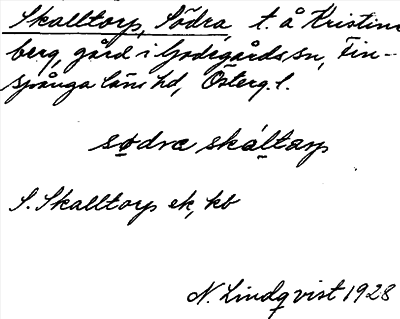 Skalltorp, Södra, t. å Kristine-
berg, gård i Godegårds sn, Fin-
spånga läns hd, Österg. l.
sødrɛ skáltɑrp
S. Skalltorp ek, kb
N. Lindqvist 1928